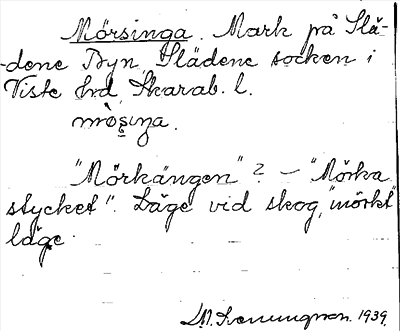 Mörsinga. Mark på Slä-
-dene Byn, Slädene socken i
Viste hrd, Skarab. l.
mòs̤iŋa.
"Mörkängen"? - "Mörka
stycket". Läge vid skog, "mörkt"
läge.
1939.